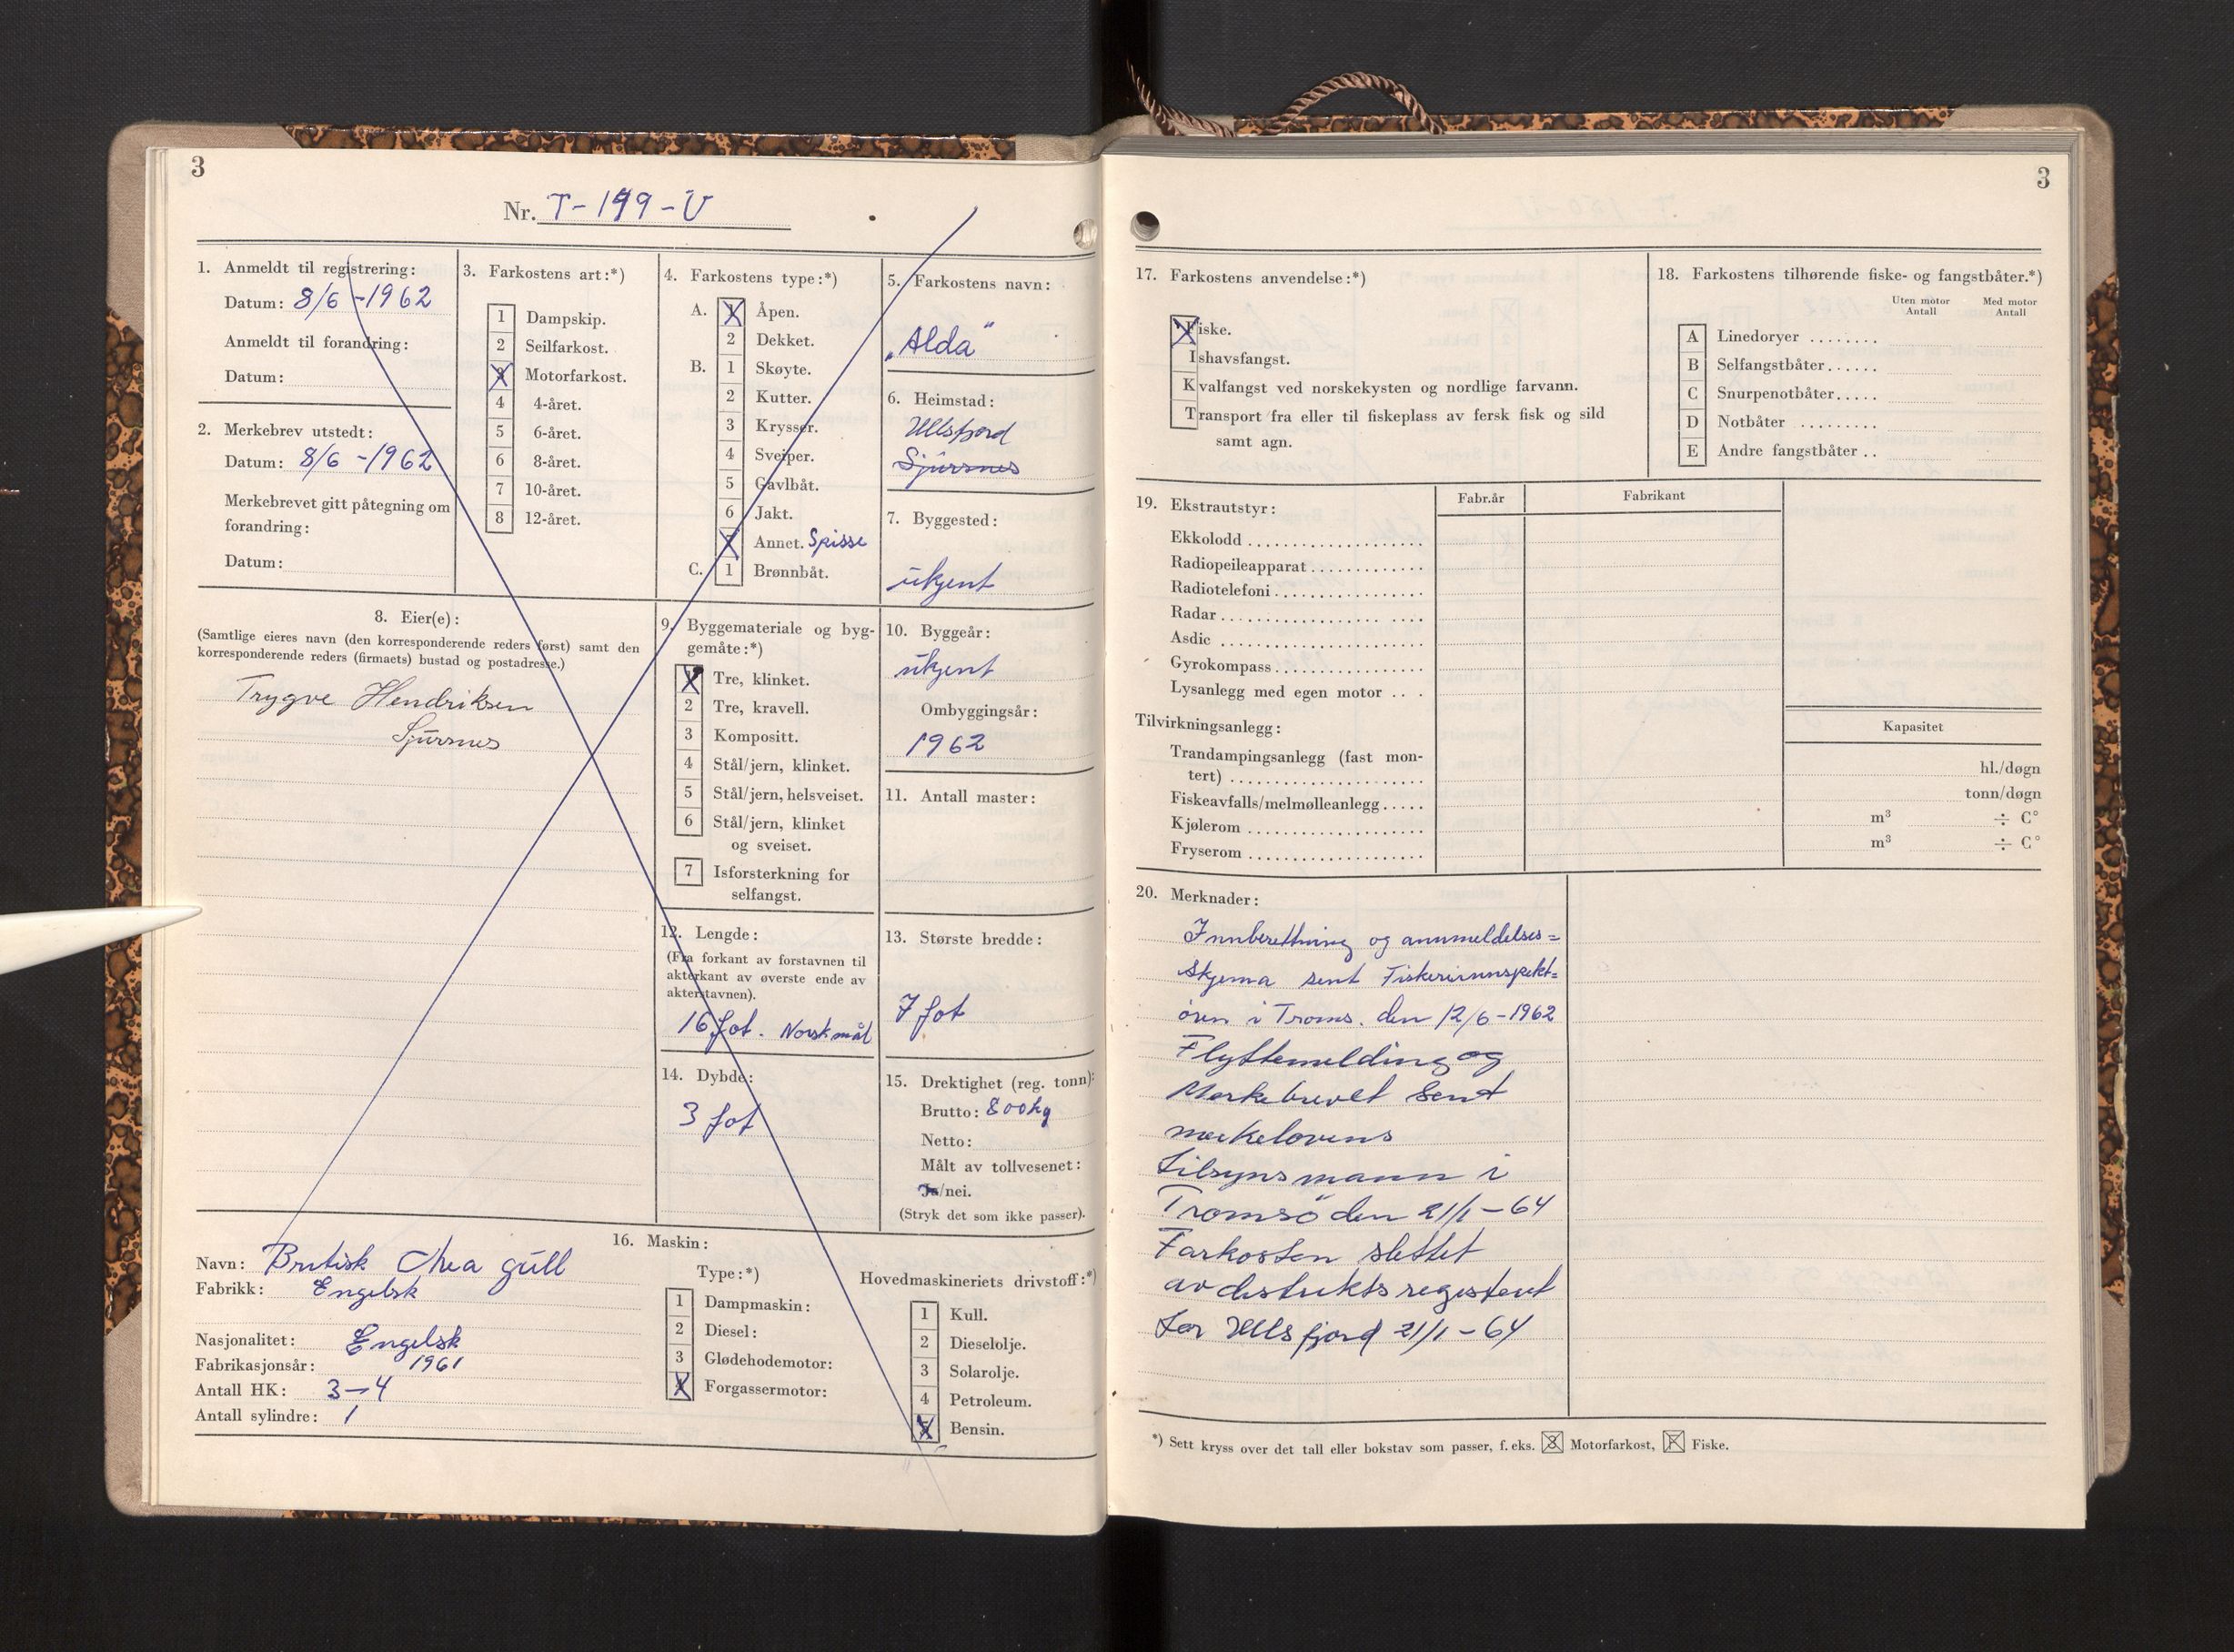 3
Nr. T-199-U
1. Anmeldt til registrering:
Datum: 8/6-1962
Anmeldt til forandring:
Datum:
2. Merkebrev utstedt:
Datum: 8/6-1962
Merkebrevet gitt påtegning om
forandring:
Datum:
3. Farkostens art:*)
1 Dampskip.
2 Seilfarkost.
3 Motorfarkost.
4 4-året.
5 6-året.
6 8-året.
7 10-året.
8 12-året.
4. Farkostens type:*)
A. 1 Åpen.
2 Dekket.
B. 1 Skøyte.
2 Kutter.
3 Krysser.
4 Sveiper.
5 Gavlbåt.
6 Jakt.
7 Annet. Spisse
C. 1 Brønnbåt.
5. Farkostens navn:
„Alda"
6. Heimstad:
Ullsfjord
Sjursnes
7. Byggested:
ukjent
8. Eier(e):
(Samtlige eieres navn (den korresponderende reders først) samt den
korresponderende reders (firmaets) bustad og postadresse.)
Trygve Hendriksen
Sjursnes
9. Byggemateriale og byg-
gemåte:*)
1 Tre, klinket.
2 Tre, kravell.
3 Kompositt.
4 Stål/jern, klinket.
5 Stål/jern, helsveiset.
6 Stål/jern, klinket
og sveiset.
7 Isforsterkning for
selfangst.
10. Byggeår:
ukjent
Ombyggingsår:
1962
11. Antall master:
12. Lengde:
(Fra forkant av forstavnen til
akterkant av øverste ende av
akterstavnen).
16 fot. Norsk mål
13. Største bredde:
7 fot
14. Dybde:
3 fot
15. Drektighet (reg. tonn):
Brutto: 800 kg
Netto:
Målt av tollvesenet:
Ja/nei.
(Stryk det som ikke passer).
16. Maskin:
Navn: Britisk Mea gull
Fabrikk: Engelsk
Nasjonalitet: Engelsk
Fabrikasjonsår: 1961
Antall HK: 3-4
Antall sylindre: 1
Type:*)
1 Dampmaskin:
2 Diesel:
3 Glødehodemotor:
4 Forgassermotor:
Hovedmaskineriets drivstoff:*)
1 Kull.
2 Dieselolje.
3 Solarolje.
4 Petroleum.
5 Bensin.
3
17. Farkostens anvendelse:*)
Fiske.
Ishavsfangst.
Kvalfangst ved norskekysten og nordlige farvann.
Transport fra eller til fiskeplass av fersk fisk og sild
samt agn.
18. Farkostens tilhørende fiske- og fangstbåter.*)
Uten motor Antall Med motor Antall
A Linedoryer ........
B Selfangstbåter......
C Snurpenotbåter.....
D Notbåter .........
E Andre fangstbåter ..
19. Ekstrautstyr:
Fabr.år Fabrikant
Ekkolodd
Radiopeileapparat
Radiotelefoni
Radar
Asdic
Gyrokompass
Lysanlegg med egen motor ...
Tilvirkningsanlegg:
Kapasitet
Trandampingsanlegg (fast mon-
tert) hl./døgn
Fiskeavfalls/melmølleanlegg..... tonn/døgn
Kjølerom m³ ÷ C°
Fryserom m³ ÷ C°
20. Merknader:
Innberettning og annmeldelses=
skjema sent Fiskeriinnspekt=
øren i Troms. den 12/6-1962
Flyttemelding og
Merkebrevet sent
merkelovens
tilsynsmann i
Tromsö den 21/1-64
Farkosten slettet
av distriktsregistent
for Ullsfjord 21/1-64
*) Sett kryss over det tall eller bokstav som passer, f. eks. 3 Motorfarkost, F Fiske.